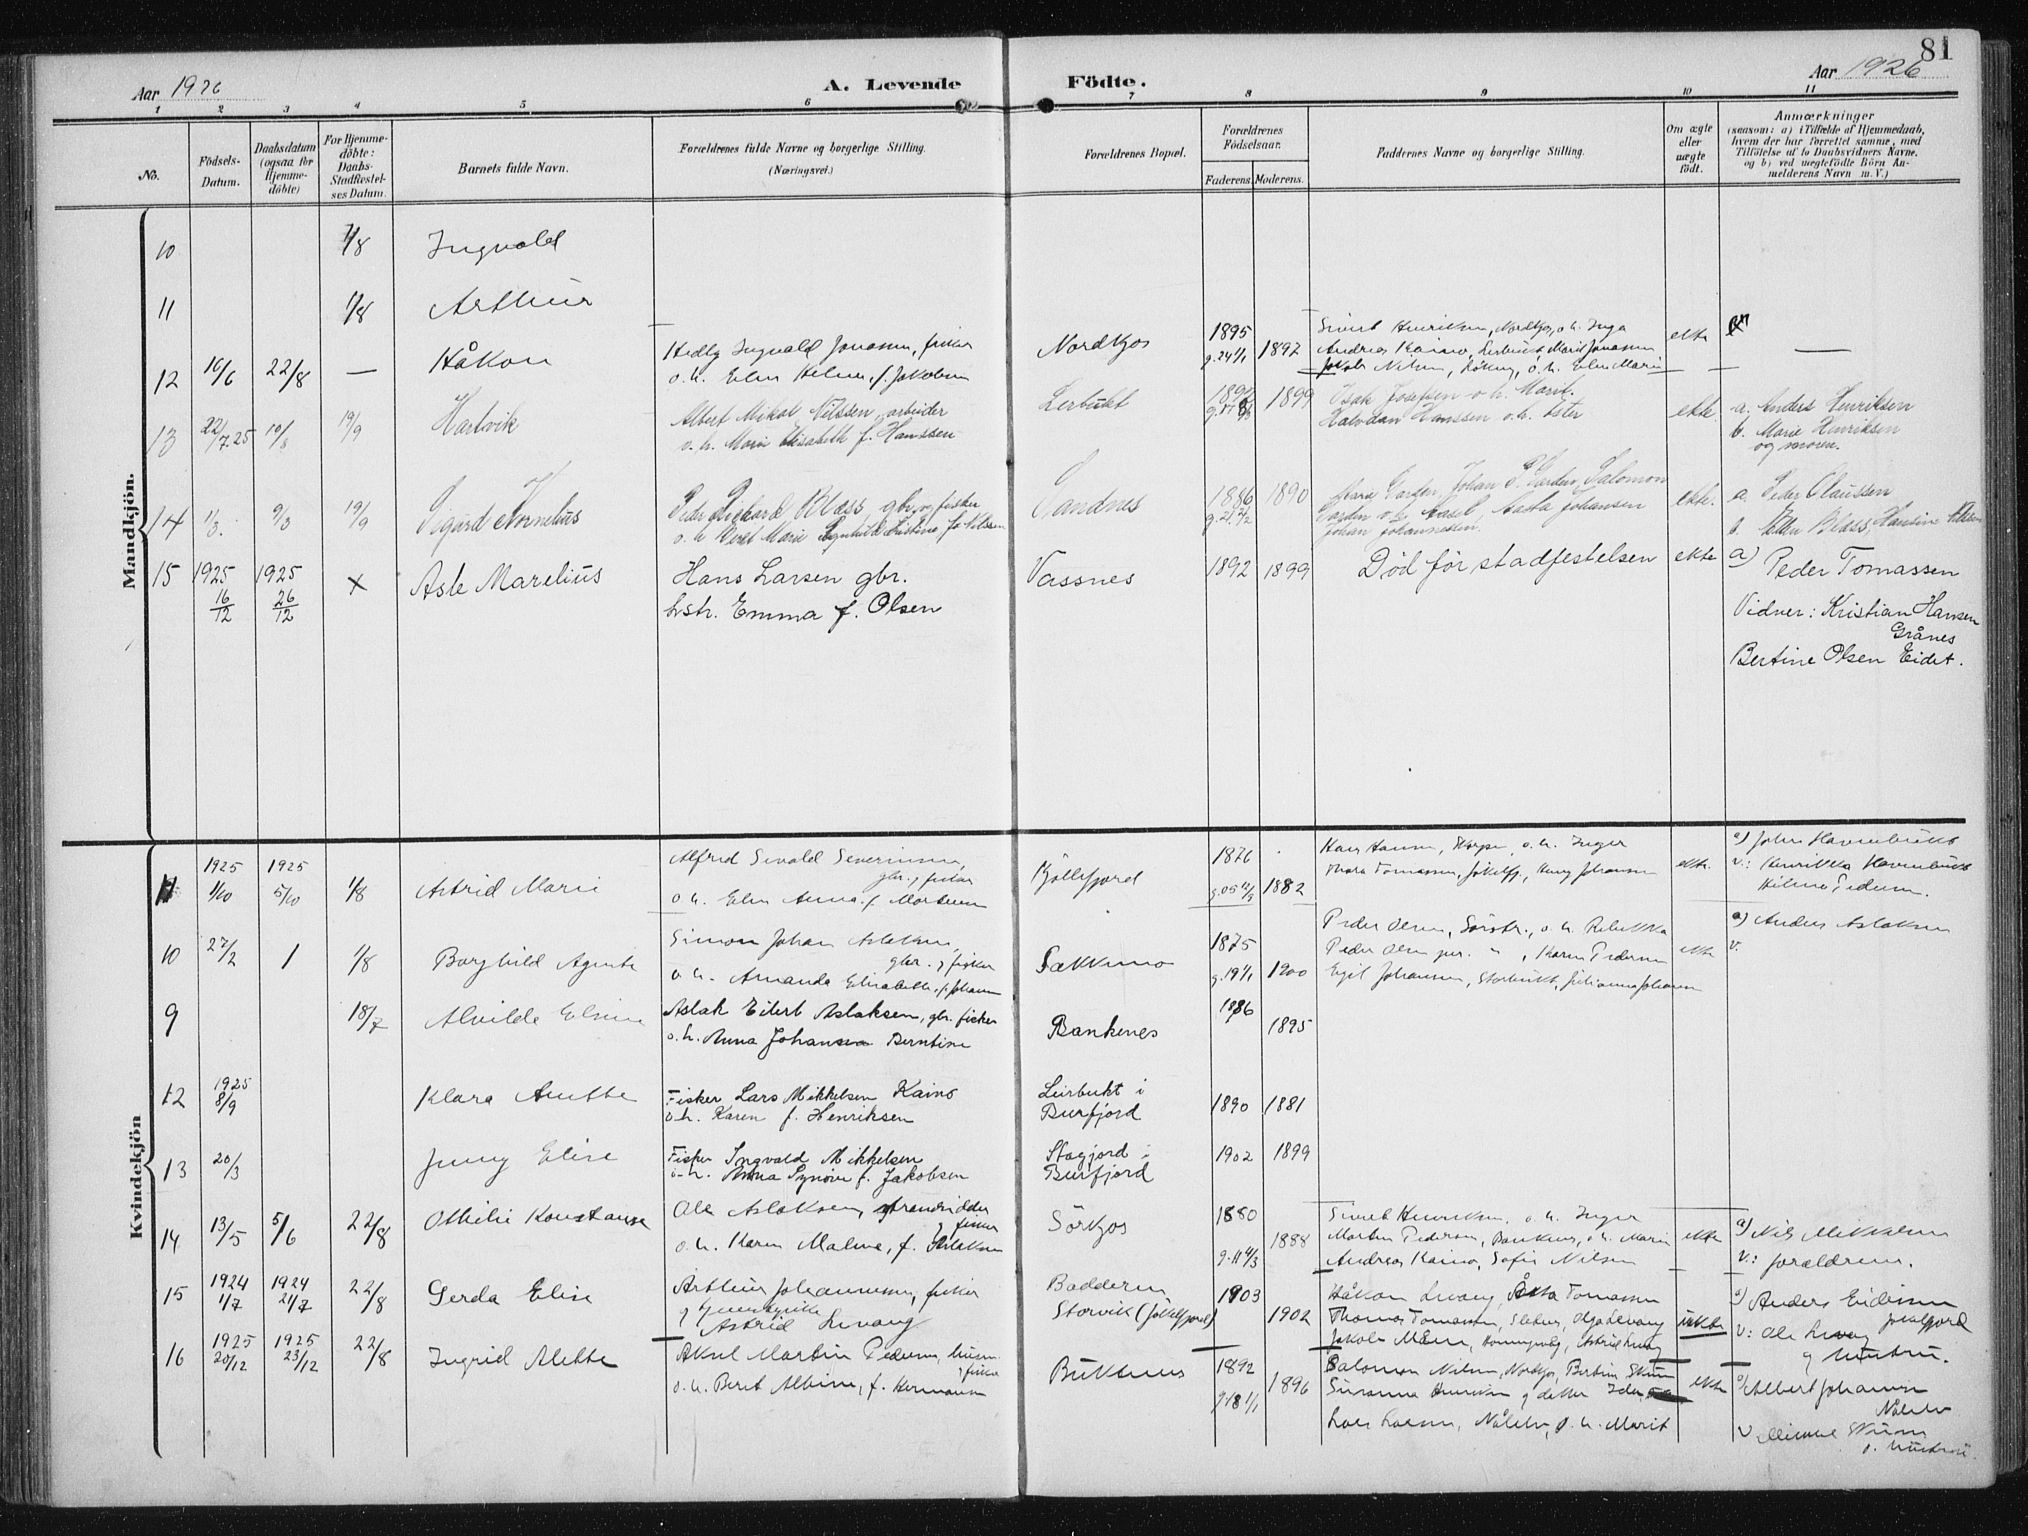 81
Aar 1926
A. Levende Födte.
Aar 1926
1 2 3 4 5 6 7 8 9 10 11
No.
Födsels-
Datum.
Daabsdatum
(ogsaa for
Hjemme-
döbte)
For Hjemme-
döbte:
Daabs-
Stadfæstel-
ses Datum.
Barnets fulde Navn.
Forældrenes fulde Navne og borgerlige Stilling.
(Næringsvei.)
Forældrenes Bopæl.
Forældrenes
Födselsaar.
Faderens. Moderens.
Faddernes Navne og borgerlige Stilling.
Om ægte
eller
uægte
födt.
Anmærkninger
(saasom: a) i Tilfælde af Hjemmedaab,
hvem der har forrettet samme, med
Tilföielse af to Daabsvidners Navne,
og b) ved uegtefödte Börn An-
melderens Navn m. V.)
Mandkjön.
10 1/8 Ingvald
11 1/8 Arthur
12 16/6 22/8 — Håkon
Hedly Ingvald Jonassen, fisker
o. h. Elen Helene, f. Jakobsen
Nordkjos
1895
g. 24 1/1 1897
Sivert Henriksen, Nordkjos, o. h. Inga
Andreas Kaino, Lerbukt, Marit Jonassen
Jakob Nilsen, o. h. Elen Marie
ekte
—
13 22/7.25 10/8 19/9 Hartvik
Albert Mikal Nilssen, arbeider
o. h. Marie Elisabeth f. Hanssen
Lerbukt
1899
Isak Josefsen o. h. Marit.
Halvdan Hanssen o. h. Ester
ekte.
a. Anders Henriksen
b. Marie Henriksen
og moren.
14 1/3. 9/3 19/9 Sigurd Kornelius
Peder Rickard Blæss, gbr. og fisker
o. h. Berit Marie Ragnhild Kristine, f. Nilssen
Sandnes
1886 1890
g. 21 2/2
Marie Garden, Johan P. Garden, Salomon
Garden o. h. Aasel, Aasta Johansen
Johan Johannesen.
ekte.
a. Peder Claussen
b. Ellen Blæss, Hansine Nilsen
15 1925 16/12 1925 26/12 x Asle Marelius
Hans Larsen gbr.
hstr. Emma f. Olsen
Vassnes
1892 1899
Död før stadfestelsen
ekte
a) Peder Tomassen
Vidner: Kristian Hansen
Grånes
Bertine Olsen Eidet.
Kvindekjön
11 1925 1/10 1925 5/10 1/8 Astrid Marie
Alfred Sivald Severinsen,
gbr. g fisker
o. h. Elen Anna f. Mortensen
Kjöllefjord
1876
g. 05 1882
Hans Hansen, o. h. Inger
Tomassen, Jökelfj., Johansen
ekte.
a)
v.:
Hilma Pedersen.
10 27/2 1 1/8 Borghild Agente
Simon Johan Aslaksen,
gbr. g fisker
o. h. Amanda Elisabeth, f. Johansen
Sakkemo
1875
g. 19 1/1 1900
Peder Olsen, Sörstr., o. h. Rebekka
Peder Olsen jun. " , Karen Pedersen
Egil Johansen, Storbukt, Julianna Johansen
ekte
a) Anders Aslaksen
v.
9 18/7 Alvilde Elvine
Aslak Eilert Aslaksen, gbr. fisker
o. h. Anna Johansen Berntine
Bankenes
1886
1895
12 1925 8/9 Klara Anette
Fisker Lars Mikkelsen Kaino
o. h. Karen f. Henriksen
Leirbukt i
Burfjord
1890 1881
13 20/3 Jenny Elise
Fisker Ingvald Mikkelsen
o. h. Anna Synöve f. Jakobsen
Stagjord i
Burfjord
1902 1899
14 13/5 5/6 22/8 Othilie Konstanse
Ole Aslaksen, strandsidder
g fisker
o. h. Karen Malene, f. Aslaksen
Sörkjos
1880
g. 11 4/3 1888
Sivert Henriksen, o. h. Inger
Martin Pedersen, Bankenes, o. h. Marie
Andreas Kaino, Sofie Nilsen
ekte
a) Nils Mikkelsen
v.: foreldrene.
15 1924 1/7 1924 21/7 22/8 Gerda Elise
Arthur Johannessen, fisker
g
Astrid Levang
Badderen
Storvik (Jökelfjord)
1903
1902
Håkon Levang, Åsta Tomassen
Thomas Tomassen, Olga Levang
Jakob Astrid Levang
uekte
a) Anders Eidissen
Jökelfjord
v: Ole Levang
g hustru.
16 1925 20/12 1925 23/12 22/8 Ingrid Alette
Aksel Martin Pedersen, husm.
g fisker
o. h. Beret Albine, f. Hermansen
Buktenes
1892
g 18 1/1 1896
Salomon Nilsen, Nordkjos, Bertine
Susanna Henriksen g datter
Lars Larsen, o. h. Marit
ekte
a) Albert Johansen
v. Mikkel
o. hustru.